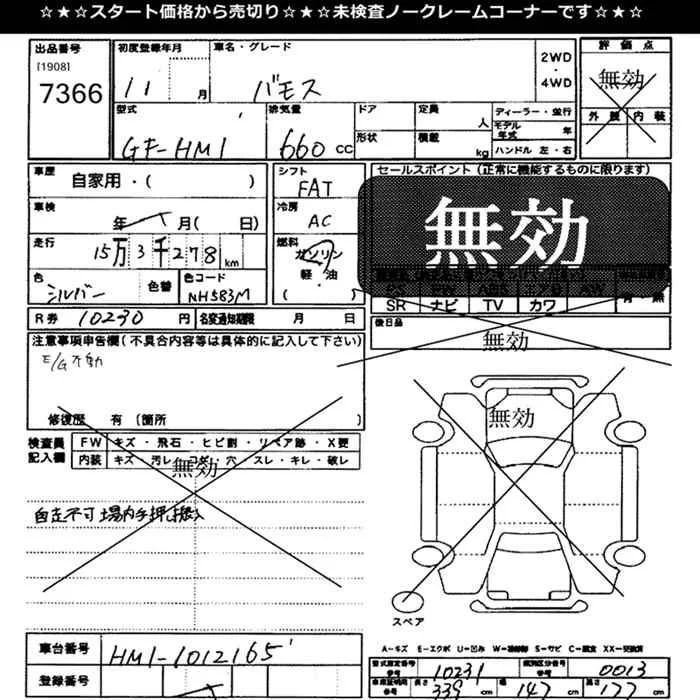 ☆★☆スタート価格から売切り☆★☆未検査ノークレームコーナーです☆★☆
出品番号 初度登録年月 車名・グレード 2WD・4WD 評価点
[1908]
7366 11 月 バモス 無効
外装 内装
型式 排気量 ドア 定員 人 ディーラー・並行
モデル年式 年
GF-HM1 660 CC 形状 積載 kg ハンドル 左・右
車歴 自家用・( ) シフト FAT セールスポイント(正常に機能するものに限ります)
車検 年 月( 日) 冷房 AC
無効
走行 15万3千278km 燃料 ガソリン
軽・油
( )
色 シルバー 色替 色コード NH583M
SR ナビ TV カワ 有・無
R券 10230 円 名変通知期限 月 日 後日品
無効
注意事項申告欄(不具合内容等は具体的に記入して下さい)
E/G不動
修復歴 有 (箇所
無効
検査員記入欄 FW キズ・飛石・ヒビ割・リペア跡・X要
内装 キズ・汚レ・コゲ・穴・スレ・キレ・破レ
無効
自走不可 場内手押し搬入
スペア
A-キズ E-エクボ U-凹み W-補修跡 S-サビ C-腐食 XX-交換済
車台番号 HM1-1012165
型式指定番号 10231 類別区分番号 0013
登録番号
長さ 339 cm 幅 147 cm 高さ 177 cm